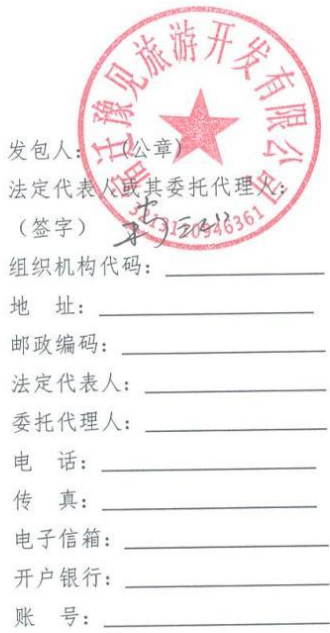 宿迁豫见旅游开发有限公司
发包人：（公章）
法定代表人或其委托代理人：
（签字）
组织机构代码：
地 址：
邮政编码：
法定代表人：
委托代理人：
电 话：
传 真：
电子信箱：
开户银行：
账 号：